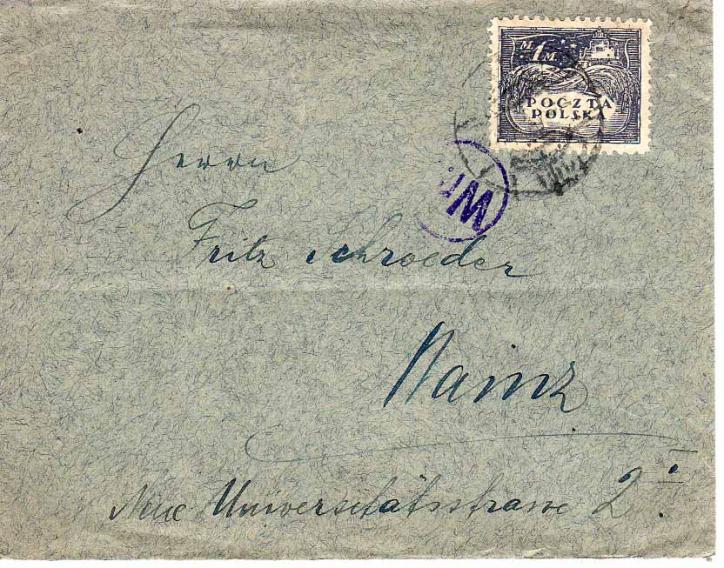 M 1 M.
POCZTA
POLSKA
Herrn
Fritz Schroeder
Mainz
Neue Universitätsstrasse 2 I